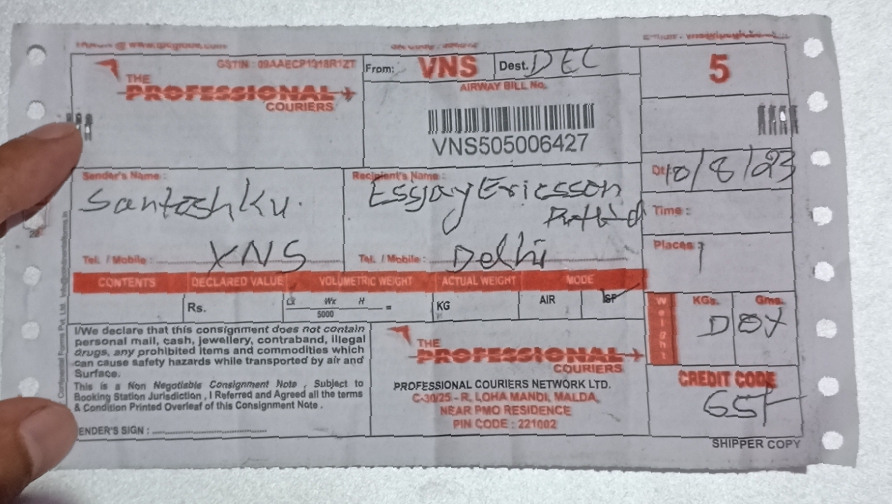 GSTIN : 09AAECP1918R1ZT
THE
PROFESSIONAL
COURIERS
From: VNS Dest. DEL
AIRWAY BILL No.
VNS505006427
5
Dt 10/8/23
Time :
Places 1
Sender's Name :
Santosh Ku.
Tel. / Mobile : VNS
Recipient's Name :
Essjay Ericsson
Tel. / Mobile : Delhi
CONTENTS DECLARED VALUE VOLUMETRIC WEIGHT ACTUAL WEIGHT MODE
Rs. Wx H = KG AIR SF
5000
Weight KGs. Gms.
D OX
CREDIT CODE
65/-
I/We declare that this consignment does not contain
personal mail, cash, jewellery, contraband, illegal
drugs, any prohibited items and commodities which
can cause safety hazards while transported by air and
Surface.
This is a Non Negotiable Consignment Note , Subject to
Booking Station Jurisdiction , I Referred and Agreed all the terms
& Condition Printed Overleaf of this Consignment Note .
ENDER'S SIGN :
THE
PROFESSIONAL
COURIERS
PROFESSIONAL COURIERS NETWORK LTD.
C-30/25 - R, LOHA MANDI, MALDA,
NEAR PMO RESIDENCE
PIN CODE : 221002
SHIPPER COPY